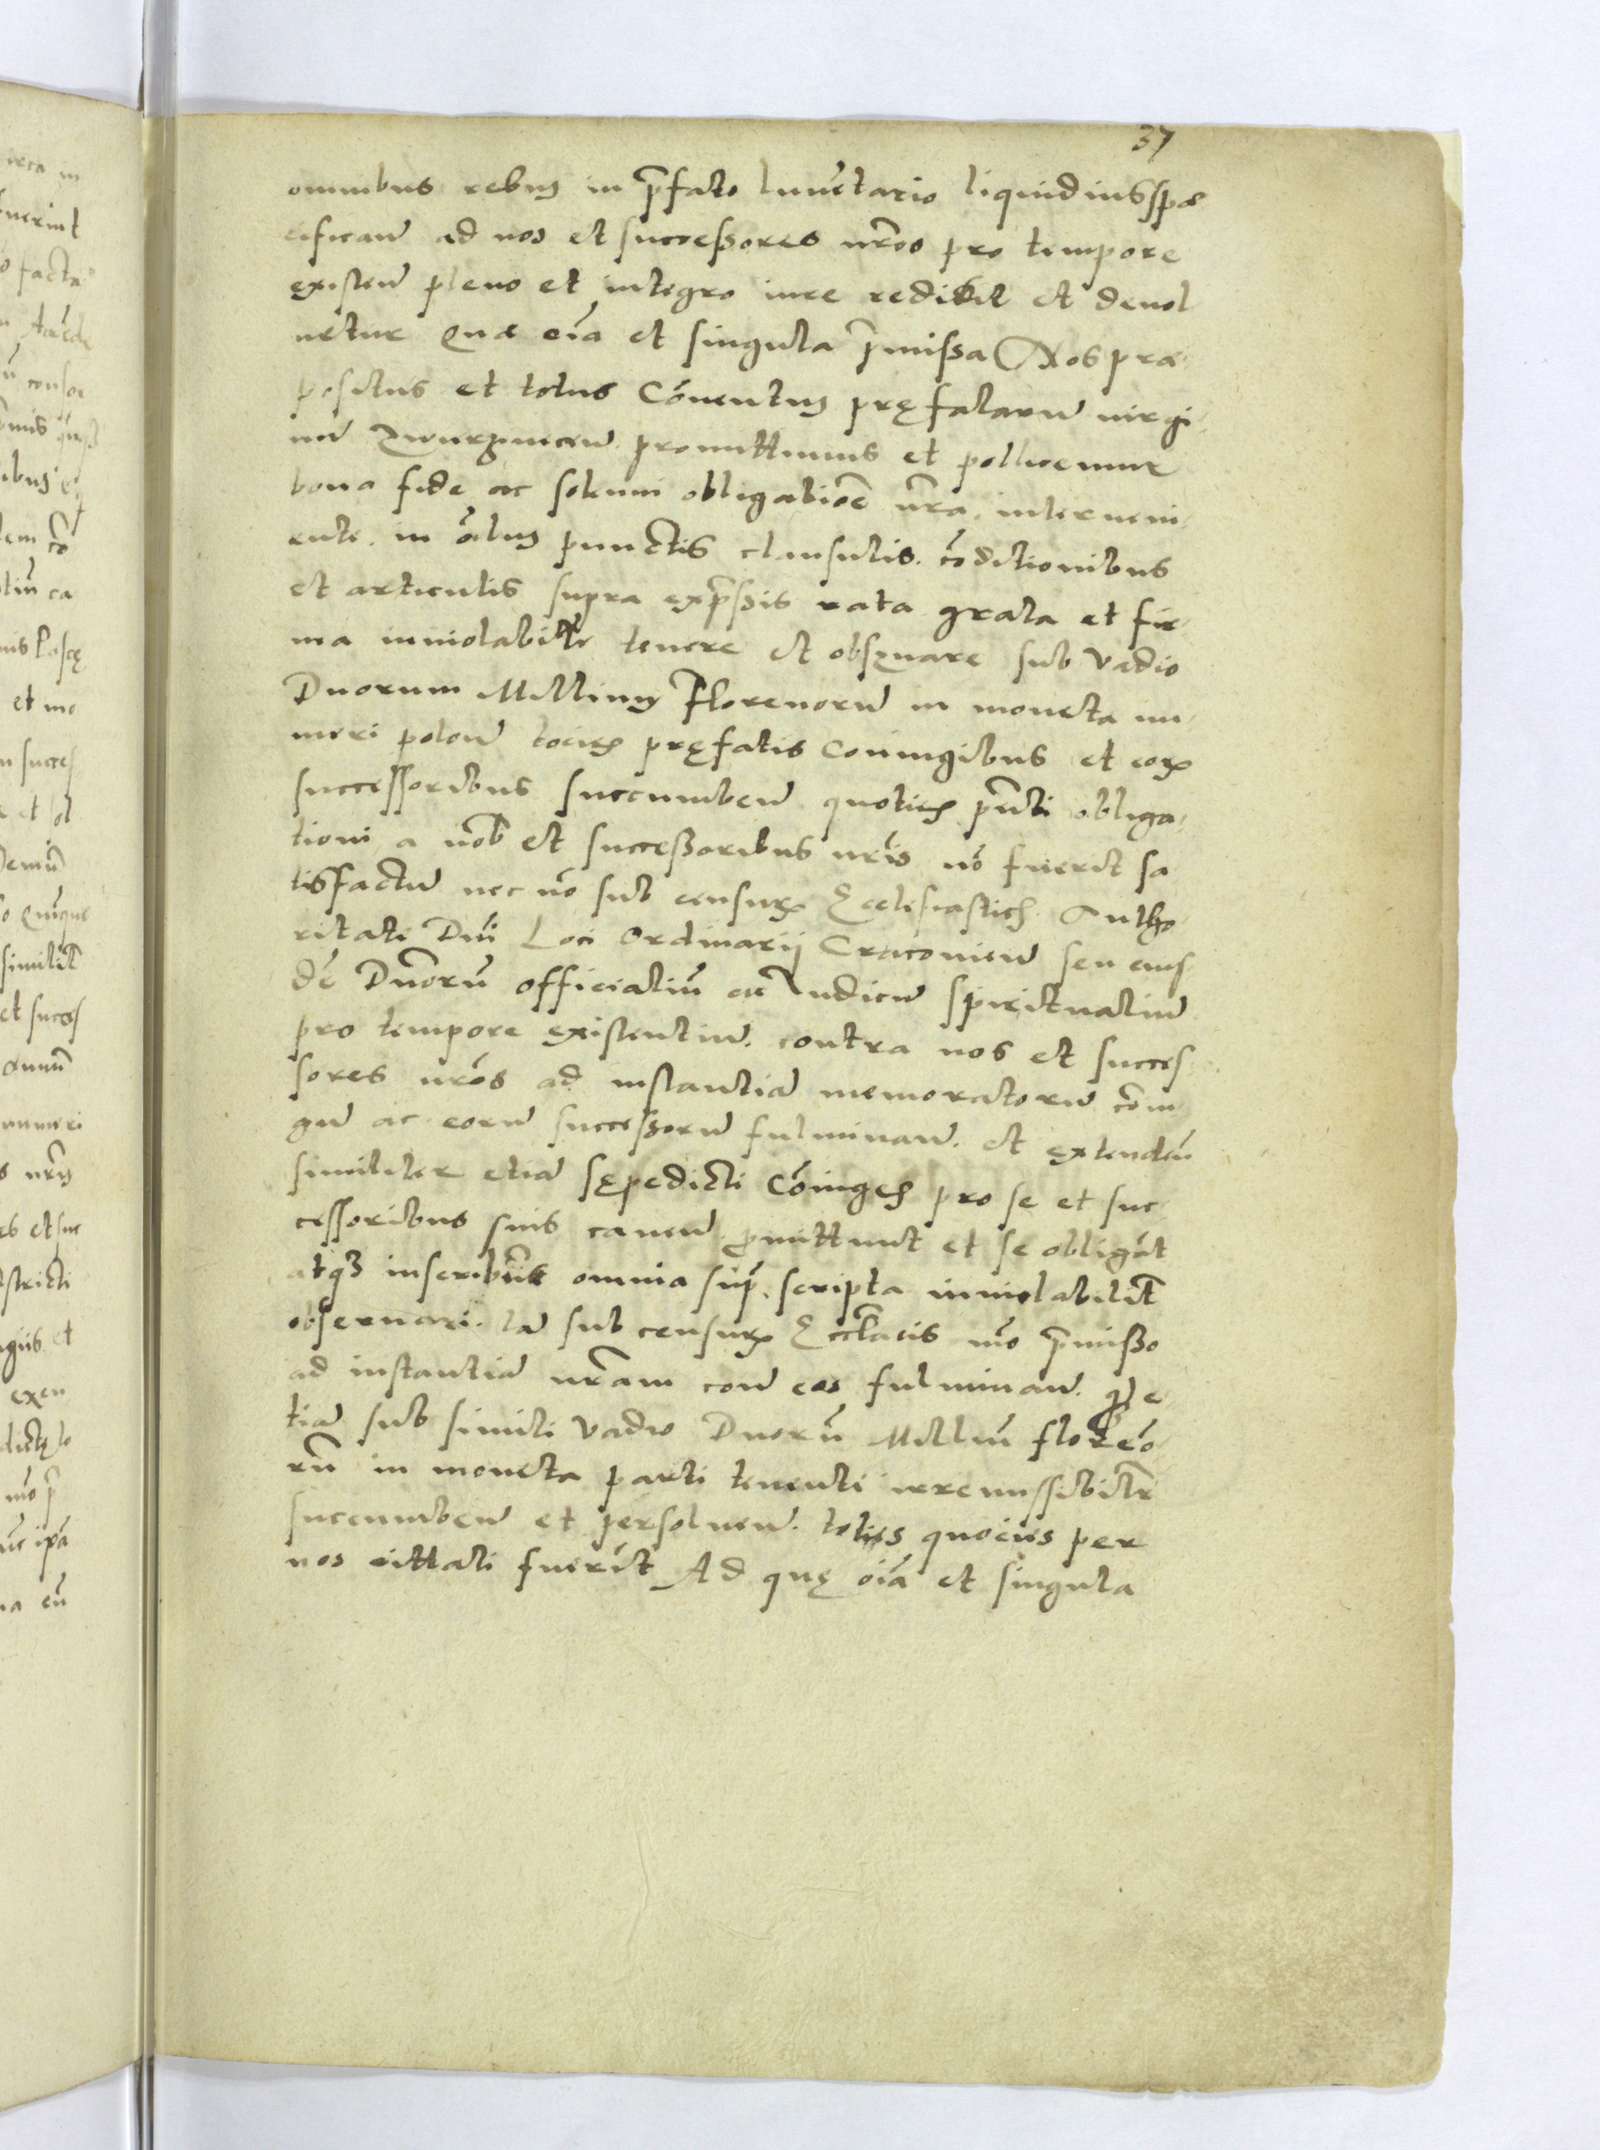 37
omnibus rebus in p̃fato Inue͂tario liquidius spæ
cifican̄ ad nos et successores nr̃os pro tempore
existen̄ pleno et integro iure redibit et deuol
uetur Quæ oi͂a et singula p̃missa Nos præ
positus et totus Co͂uentus pręfatarum̄ virgi
nū promittimus et pollicemur
bona fide ac solenni obligatio͂e nr̃a interueni
ente. in o͂ibus punctis clausulis. co͂ditionibus
et articulis supra exp̃ssis rata grata et fir
ma inuiolabiłr tenere et obseruare sub vadio
Duorum Millium Florenorū in moneta nu
meri polon̄ tocies pręfatis Coniugibus et eorꝝ
successoribus succumben̄ quoties pñti obliga
tioni a nob̃ et successoribus nr̃is no͂ fuerit sa
tisfactū nec no͂ sub censurꝭ Ecclesiasticꝭ Autho
ritate Dñi Loci Ordinarij Cracouien̄ seu eius
de͂ Dnorū officialiū et Iudicū spiritualiū
pro tempore existentiū. contra nos et succes
sores nr̃os ad instantiā memoratorū co͂iu
gū ac eorū successorū fulminan̄. et extenden̄
similiter etiā sępedicti Co͂iuges pro se et suc
cessoribus suis cauen̄ p̱mittunt et se obliga͂t
atqꝫ inscribunt omnia sup̃. scripta inuiolabilit̃
obseruari. tā sub censurꝭ Eccl̃acis mo͂ p̃misso
ad instantiā nr̃am con̄ eos fulminan̄. q̃ e
tiā sub simili vadio Duorū Milliū flore͂o
rū in moneta parti tenenti irremissibilr̃
succumben̄ et persoluen̄. toties quocies per
nos cittati fueri͂t Ad quę oi͂a et singula